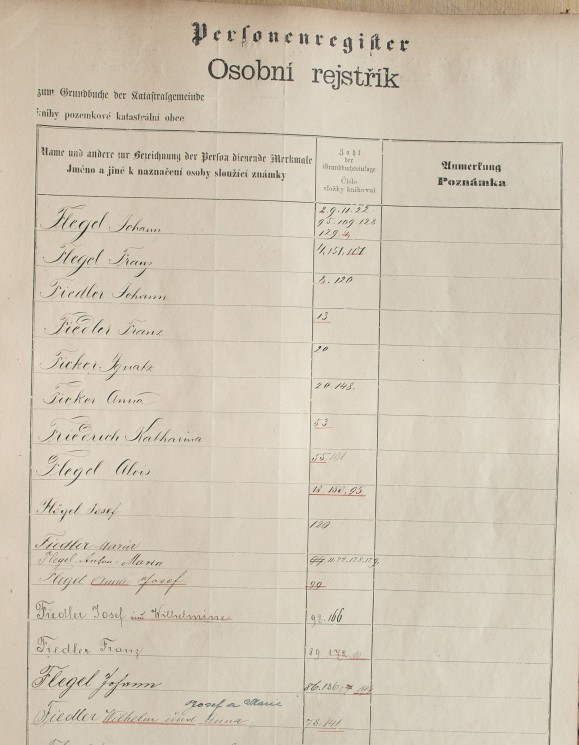 Personenregister
Osobní rejstřík
zum Grundbuche der Katastralgemeinde
knihy pozemkové katastrální obce
Name und andere zur Bezeichnung der Person dienende Merkmale
Jméno a jiné k naznačení osoby sloužící známky
Zahl
der
Grundbuchseinlage
Číslo
vložky knihovní
Anmerkung
Poznámka
Flegel Johann
2.9.11.22
95.109.128
129.4,
Flegel Franz
4,151,101
Fiedler Johann
8.120
Fiedler Franz
13
Ficker Ignatz
20
Ficker Anna
20.148.
Friedrich Katharina
53
Flegel Alois
55
Flögel Josef
18.180.95
Fiedler Marie
120
Flegel Anton Maria
Flegel Anna Josef
99
Fiedler Josef und Wilhelmine
92.166
Fiedler Franz
89 172
Flegel Johann
86.136
Josef a Marie
Fiedler Wilhelm und Anna
78.141